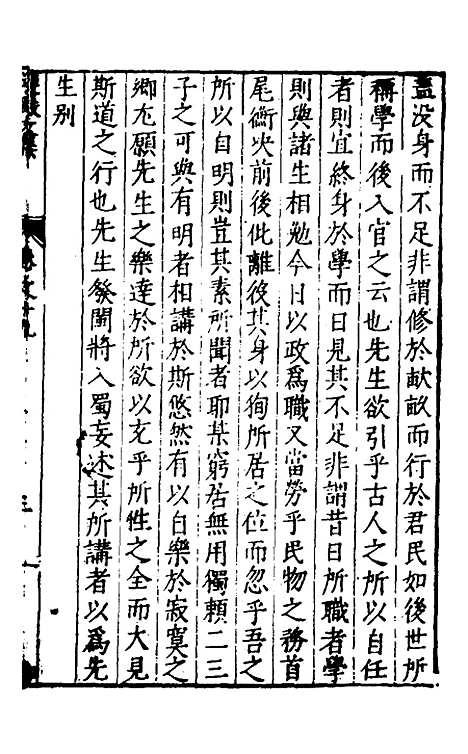 蓋没身而不足非謂修於畎畝而行於君民如後世所
稱學而後入官之云也先生欲引乎古人之所以自任
者則宜終身於學而日見其不足非謂昔日所職者學
則與諸生相勉今日以政爲職又當勞乎民物之務首
尾衡决前後仳離役其身以狥所居之位而忽乎吾之
所以自明則豈其素所聞者耶某窮居無用獨頼二三
子之可與有明者相講於斯悠然有以自樂於寂寞之
鄉尤願先生之樂達於所欲以充乎所性之全而大見
斯道之行也先生發閩將入蜀妄述其所講者以爲先
生别